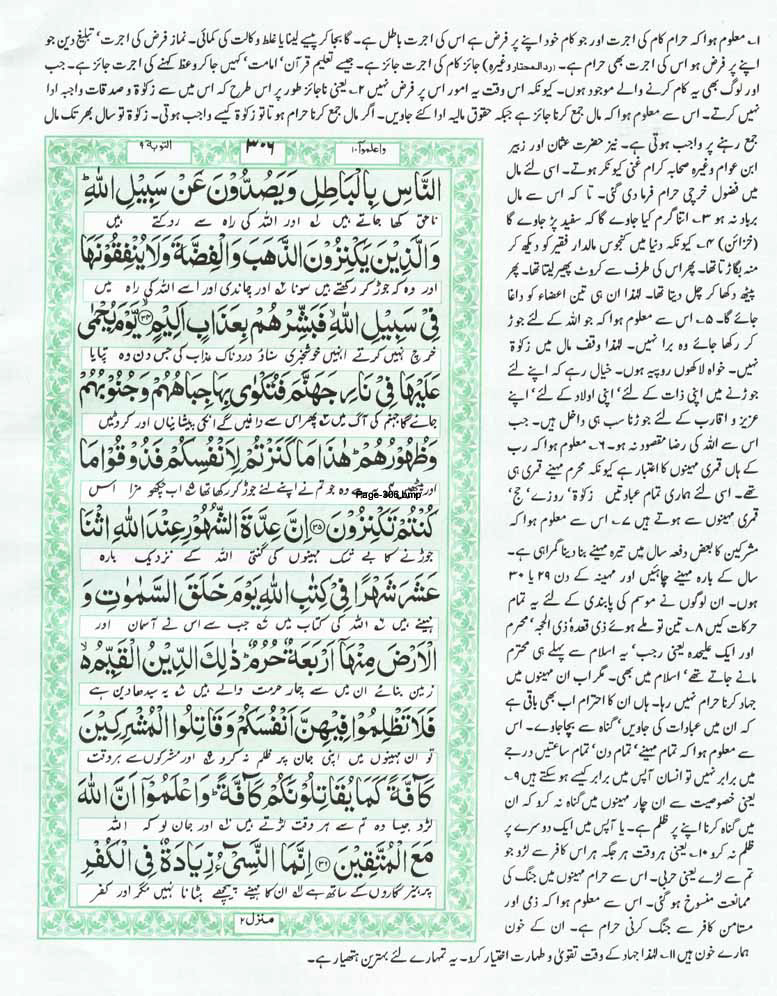 ۱؎ معلوم ہوا کہ حرام کام کی اجرت اور جو کام خود اپنے پر فرض ہے اس کی اجرت باطل ہے۔ گا بجا کر پیسے لینا یا غلط وکالت کی کمائی۔ نماز فرض کی اجرت، تبلیغ دین جو
اپنے پر فرض ہو اس کی اجرت بھی حرام ہے۔ (ردالمحتار وغیرہ) جائز کام کی اجرت جائز ہے۔ جیسے تعلیم قرآن، امامت، کہیں جا کر وعظ کہنے کی اجرت جائز ہے۔ جب
اور لوگ بھی یہ کام کرنے والے موجود ہوں۔ کیونکہ اس وقت یہ امور اس پر فرض نہیں ۲؎ یعنی ناجائز طور پر اس طرح کہ اس میں سے زکوٰۃ و صدقات واجبہ ادا
نہیں کرتے۔ اس سے معلوم ہوا کہ مال جمع کرنا جائز ہے جبکہ حقوق مالیہ ادا کئے جاویں۔ اگر مال جمع کرنا حرام ہوتا تو زکوٰۃ کیسے واجب ہوتی۔ زکوٰۃ تو سال بھر تک مال
جمع رہنے پر واجب ہوتی ہے۔ نیز حضرت عثمان اور زبیر
ابن عوام وغیرہ صحابہ کرام غنی کیونکر ہوتے۔ اسی لئے مال
میں فضول خرچی حرام فرما دی گئی۔ تا کہ اس سے مال
برباد نہ ہو ۳؎ اتنا گرم کیا جاوے گا کہ سفید پڑ جاوے گا
(خزائن) ۴؎ کیونکہ دنیا میں کنجوس مالدار فقیر کو دیکھ کر
منہ بگاڑتا تھا۔ پھر اس کی طرف سے کروٹ پھیر لیتا تھا۔ پھر
پیٹھ دکھا کر چل دیتا تھا۔ لہٰذا ان ہی تین اعضاء کو داغا
جائے گا۔ ۵؎ اس سے معلوم ہوا کہ جو اللہ کے لئے جوڑ
کر رکھا جائے وہ برا نہیں۔ لہٰذا وقف مال میں زکوٰۃ
نہیں۔ خواہ لاکھوں روپیہ ہوں۔ خیال رہے کہ اپنے لئے
جوڑنے میں اپنی ذات کے لئے، اپنی اولاد کے لئے، اپنے
عزیز و اقارب کے لئے جوڑنا سب ہی داخل ہیں۔ جب
اس سے اللہ کی رضا مقصود نہ ہو۔ ۶؎ معلوم ہوا کہ رب
کے ہاں قمری مہینوں کا اعتبار ہے کیونکہ محرم مہینے قمری ہی
تھے۔ اسی لئے ہماری تمام عبادتیں زکوٰۃ، روزے، حج،
قمری مہینوں سے ہوتے ہیں ۷؎ اس سے معلوم ہوا کہ
مشرکین کا بعض دفعہ سال میں تیرہ مہینے بنا دینا گمراہی ہے۔
سال کے بارہ مہینے چاہئیں اور مہینہ کے دن ۲۹ یا ۳۰
ہوں۔ ان لوگوں نے موسم کی پابندی کے لئے یہ تمام
حرکات کیں ۸؎ تین تو ملے ہوئے ذی قعدہ ذی الحجہ، محرم
اور ایک علیحدہ یعنی رجب، یہ اسلام سے پہلے ہی محترم
مانے جاتے تھے، اسلام میں بھی۔ مگر اب ان مہینوں میں
جہاد کرنا حرام نہیں رہا۔ ہاں ان کا احترام اب بھی باقی ہے
کہ ان میں عبادات کی جاویں، گناہ سے بچا جاوے۔ اس
سے معلوم ہوا کہ تمام مہینے، تمام دن، تمام ساعتیں درجے
میں برابر نہیں تو انسان آپس میں برابر کیسے ہو سکتے ہیں ۹؎
یعنی خصوصیت سے ان چار مہینوں میں گناہ نہ کرو کہ ان
میں گناہ کرنا اپنے پر ظلم ہے۔ یا آپس میں ایک دوسرے پر
ظلم نہ کرو ۱۰؎ یعنی ہر وقت ہر جگہ ہر اس کافر سے لڑو جو
تم سے لڑے یعنی حربی۔ اس سے حرام مہینوں میں جنگ کی
ممانعت منسوخ ہو گئی۔ اس سے معلوم ہوا کہ ذمی اور
مستامن کافر سے جنگ کرنی حرام ہے۔ ان کے خون
ہمارے خون ہیں ۱۱؎ لہٰذا جہاد کے وقت تقویٰ و طہارت اختیار کرو۔ یہ تمہارے لئے بہترین ہتھیار ہے۔
واعلموا ۱۰
۳۰۶
التوبۃ ۹
النَّاسِ بِالْبَاطِلِ وَيَصُدُّوْنَ عَنْ سَبِيْلِ اللّٰهِ ؕ
ناحق کھا جاتے ہیں ۱؎ اور اللہ کی راہ سے روکتے ہیں
وَالَّذِيْنَ يَكْنِزُوْنَ الذَّهَبَ وَالْفِضَّةَ وَلَا يُنْفِقُوْنَهَا
اور وہ کہ جوڑ کر رکھتے ہیں سونا ۲؎ اور چاندی اور اسے اللہ کی راہ میں
فِيْ سَبِيْلِ اللّٰهِ ۙ فَبَشِّرْهُمْ بِعَذَابٍ اَلِيْمٍ ﴿۳۴﴾ يَّوْمَ يُحْمٰى
خرچ نہیں کرتے انہیں خوشخبری سناؤ دردناک عذاب کی جس دن وہ تپایا
عَلَيْهَا فِيْ نَارِ جَهَنَّمَ فَتُكْوٰى بِهَا جِبَاهُهُمْ وَجُنُوْبُهُمْ
جائے گا جہنم کی آگ میں ۳؎ پھر اس سے داغیں گے انکی پیشانیاں اور کروٹیں
وَظُهُوْرُهُمْ ؕ هٰذَا مَا كَنَزْتُمْ لِاَنْفُسِكُمْ فَذُوْقُوْا مَا
اور پیٹھیں ۴؎ یہ ہے وہ جو تم نے اپنے لئے جوڑ کر رکھا تھا ۵؎ اب چکھو مزا اس
Page-306.bmp
كُنْتُمْ تَكْنِزُوْنَ ﴿۳۵﴾ اِنَّ عِدَّةَ الشُّهُوْرِ عِنْدَ اللّٰهِ اثْنَا
جوڑنے کا بے شک مہینوں کی گنتی اللہ کے نزدیک بارہ
عَشَرَ شَهْرًا فِيْ كِتٰبِ اللّٰهِ يَوْمَ خَلَقَ السَّمٰوٰتِ وَ
مہینے ہیں ۶؎ اللہ کی کتاب میں ۷؎ جب سے اس نے آسمان اور
الْاَرْضَ مِنْهَاۤ اَرْبَعَةٌ حُرُمٌ ؕ ذٰلِكَ الدِّيْنُ الْقَيِّمُ ۬ۙ
زمین بنائے ان میں سے چار حرمت والے ہیں ۸؎ یہ سیدھا دین ہے
فَلَا تَظْلِمُوْا فِيْهِنَّ اَنْفُسَكُمْ وَقَاتِلُوا الْمُشْرِكِيْنَ
تو ان مہینوں میں اپنی جان پر ظلم نہ کرو ۹؎ اور مشرکوں سے ہر وقت
كَآفَّةً كَمَا يُقَاتِلُوْنَكُمْ كَآفَّةً ؕ وَاعْلَمُوْۤا اَنَّ اللّٰهَ
لڑو جیسا وہ تم سے ہر وقت لڑتے ہیں ۱۰؎ اور جان لو کہ اللہ
مَعَ الْمُتَّقِيْنَ ﴿۳۶﴾ اِنَّمَا النَّسِيْٓءُ زِيَادَةٌ فِي الْكُفْرِ
پرہیزگاروں کے ساتھ ہے ۱۱؎ ان کا مہینے پیچھے ہٹانا نہیں مگر اور کفر
منزل ۲